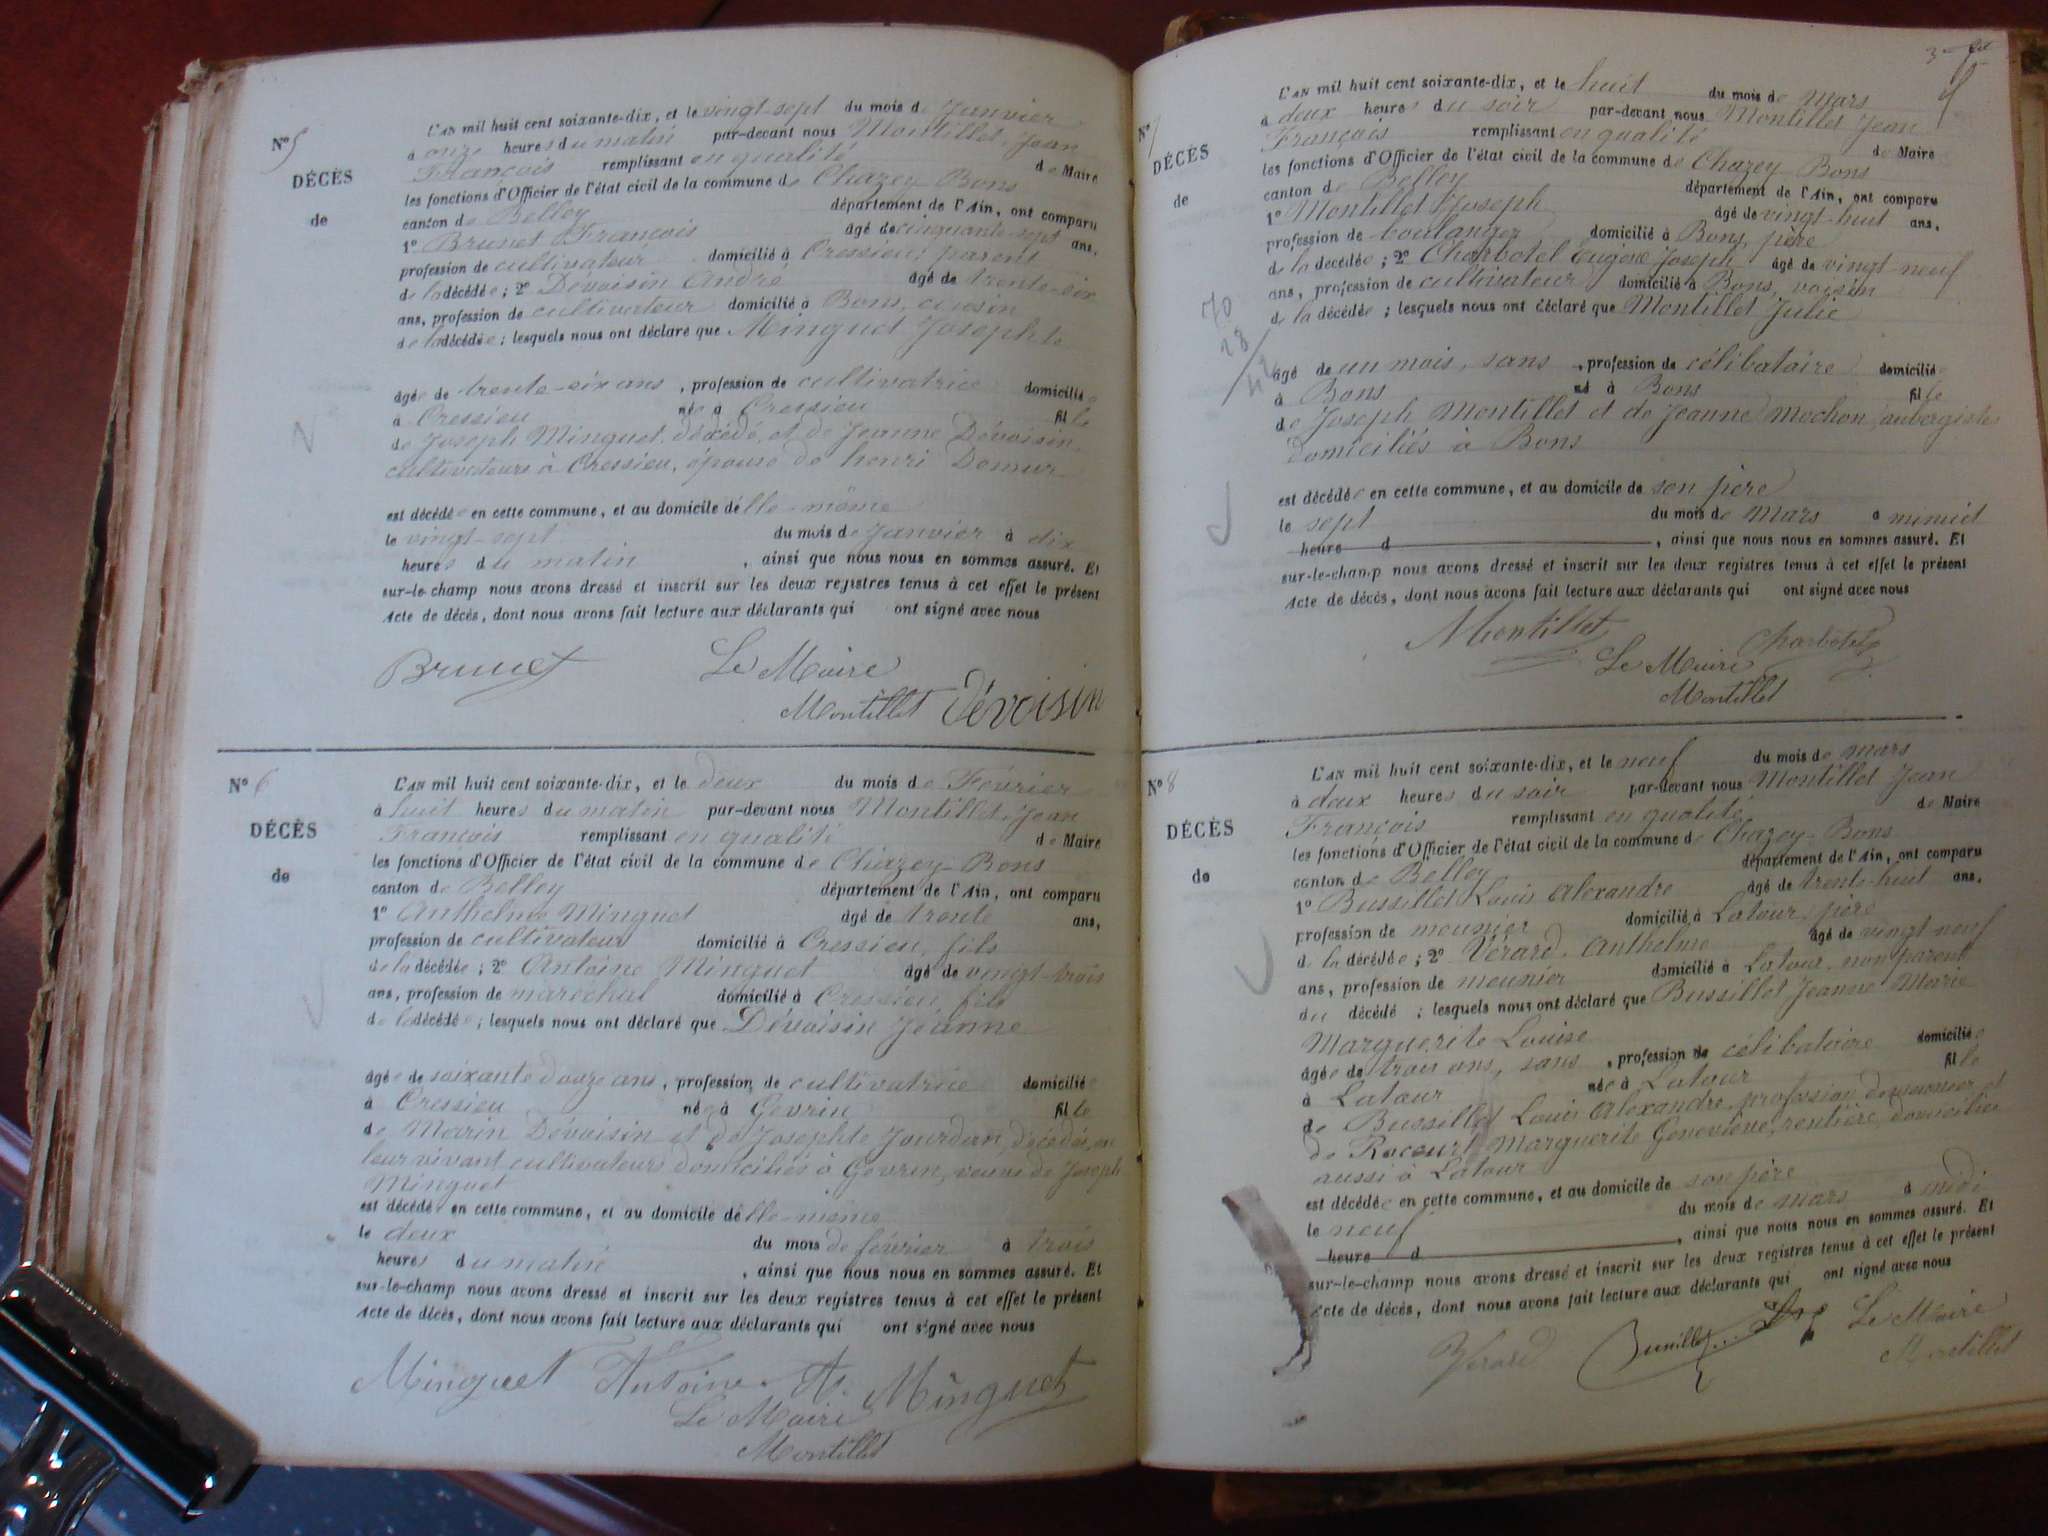 N° 5
DÉCÈS
de
L'AN mil huit cent soixante-dix, et le vingt-sept du mois de Janvier
à onze heures du matin par-devant nous Montillet, Jean
François remplissant en qualité de Maire
les fonctions d'Officier de l'état civil de la commune de Chazey-Bons
canton de Belley département de l'Ain, ont comparu
1° Brunet François âgé de cinquante-sept ans,
profession de cultivateur domicilié à Cressieu, parent
de la décédée ; 2° Dévoisin André âgé de trente-six
ans, profession de cultivateur domicilié à Bons, cousin
de la décédée ; lesquels nous ont déclaré que Minguet Josephte
âgée de trente-six ans, profession de cultivatrice domiciliée
à Cressieu née à Cressieu fille
de Joseph Minguet, décédé, et de Jeanne Dévoisin,
cultivateurs à Cressieu, épouse de henri Demur
est décédée en cette commune, et au domicile d'elle-même
le vingt-sept du mois de Janvier à dix
heures du matin, ainsi que nous nous en sommes assuré. Et
sur-le-champ nous avons dressé et inscrit sur les deux registres tenus à cet effet le présent
Acte de décès, dont nous avons fait lecture aux déclarants qui ont signé avec nous
Brunet Le Maire
Montillet Dévoisin
N° 6
DÉCÈS
de
L'AN mil huit cent soixante-dix, et le deux du mois de Février
à huit heures du matin par-devant nous Montillet, Jean
François remplissant en qualité de Maire
les fonctions d'Officier de l'état civil de la commune de Chazey-Bons
canton de Belley département de l'Ain, ont comparu
1° Anthelme Minguet âgé de trente ans,
profession de cultivateur domicilié à Cressieu, fils
de la décédée ; 2° Antoine Minguet âgé de vingt-trois
ans, profession de maréchal domicilié à Cressieu, fils
de la décédée ; lesquels nous ont déclaré que Dévoisin Jéanne
âgée de soixante douze ans, profession de cultivatrice domiciliée
à Cressieu née à Gevrin fille
de Marin Dévoisin et de Josephte Jourdan, décédés, en
leur vivant cultivateurs domiciliés à Gevrin, veuve de Joseph
Minguet
est décédée en cette commune, et au domicile d'elle-même
le deux du mois de février à trois
heures du matin, ainsi que nous nous en sommes assuré. Et
sur-le-champ nous avons dressé et inscrit sur les deux registres tenus à cet effet le présent
Acte de décès, dont nous avons fait lecture aux déclarants qui ont signé avec nous
Minguet Antoine A. Minguet
Le Maire
Montillet
3
N° 7
DÉCÈS
de
L'AN mil huit cent soixante-dix, et le huit du mois de mars
à deux heures du soir par-devant nous Montillet Jean
François remplissant en qualité de Maire
les fonctions d'Officier de l'état civil de la commune de Chazey-Bons
canton de Belley département de l'Ain, ont comparu
1° Montillet Joseph âgé de vingt-huit ans,
profession de boulanger domicilié à Bons, père
de la décédée ; 2° Charbotel Eugène Joseph âgé de vingt-neuf
ans, profession de cultivateur domicilié à Bons, voisin
de la décédée ; lesquels nous ont déclaré que Montillet Julie
70
28
42
âgé de un mois, sans profession de célibataire domiciliée
à Bons né à Bons fille
de Joseph Montillet et de Jeanne Mochon, aubergistes
domiciliés à Bons
est décédée en cette commune, et au domicile de son père
le sept du mois de mars à minuit
heure d, ainsi que nous nous en sommes assuré. Et
sur-le-champ nous avons dressé et inscrit sur les deux registres tenus à cet effet le présent
Acte de décès, dont nous avons fait lecture aux déclarants qui ont signé avec nous
Montillet Charbotel
Le Maire
Montillet
N° 8
DÉCÈS
de
L'AN mil huit cent soixante-dix, et le neuf du mois de mars
à deux heures du soir par-devant nous Montillet Jean
François remplissant en qualité de Maire
les fonctions d'Officier de l'état civil de la commune de Chazey-Bons
canton de Belley département de l'Ain, ont comparu
1° Bussillet Louis Alexandre âgé de trente-huit ans,
profession de meunier domicilié à Latour, père
de la décédée ; 2° Vérard Anthelme âgé de vingt-neuf
ans, profession de meunier domicilié à Latour, non parent
du décédé ; lesquels nous ont déclaré que Bussillet Jeanne Marie
Marguerite Louise
âgée de trois ans, sans profession de célibataire domiciliée
à Latour née à Latour fille
de Bussillet Louis Alexandre, profession de meunier et
de Rocourt Marguerite Geneviève, rentière, domiciliée
aussi à Latour
est décédée en cette commune, et au domicile de son père
le neuf du mois de mars à midi
heure d, ainsi que nous nous en sommes assuré. Et
sur-le-champ nous avons dressé et inscrit sur les deux registres tenus à cet effet le présent
Acte de décès, dont nous avons fait lecture aux déclarants qui ont signé avec nous
Vérard Bussillet Le Maire
Montillet